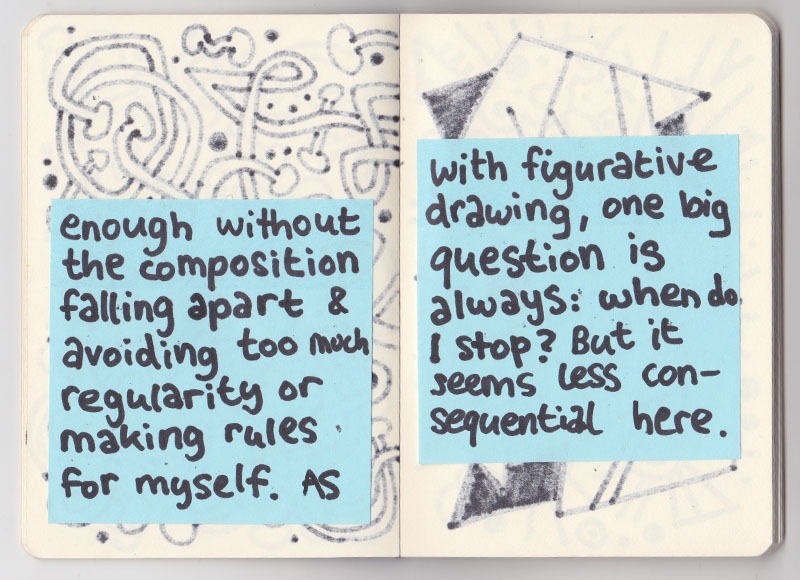 enough without
the composition
falling apart &
avoiding too much
regularity or
making rules
for myself. AS
with figurative
drawing, one big
question is
always: when do
I stop? But it
seems less con-
sequential here.